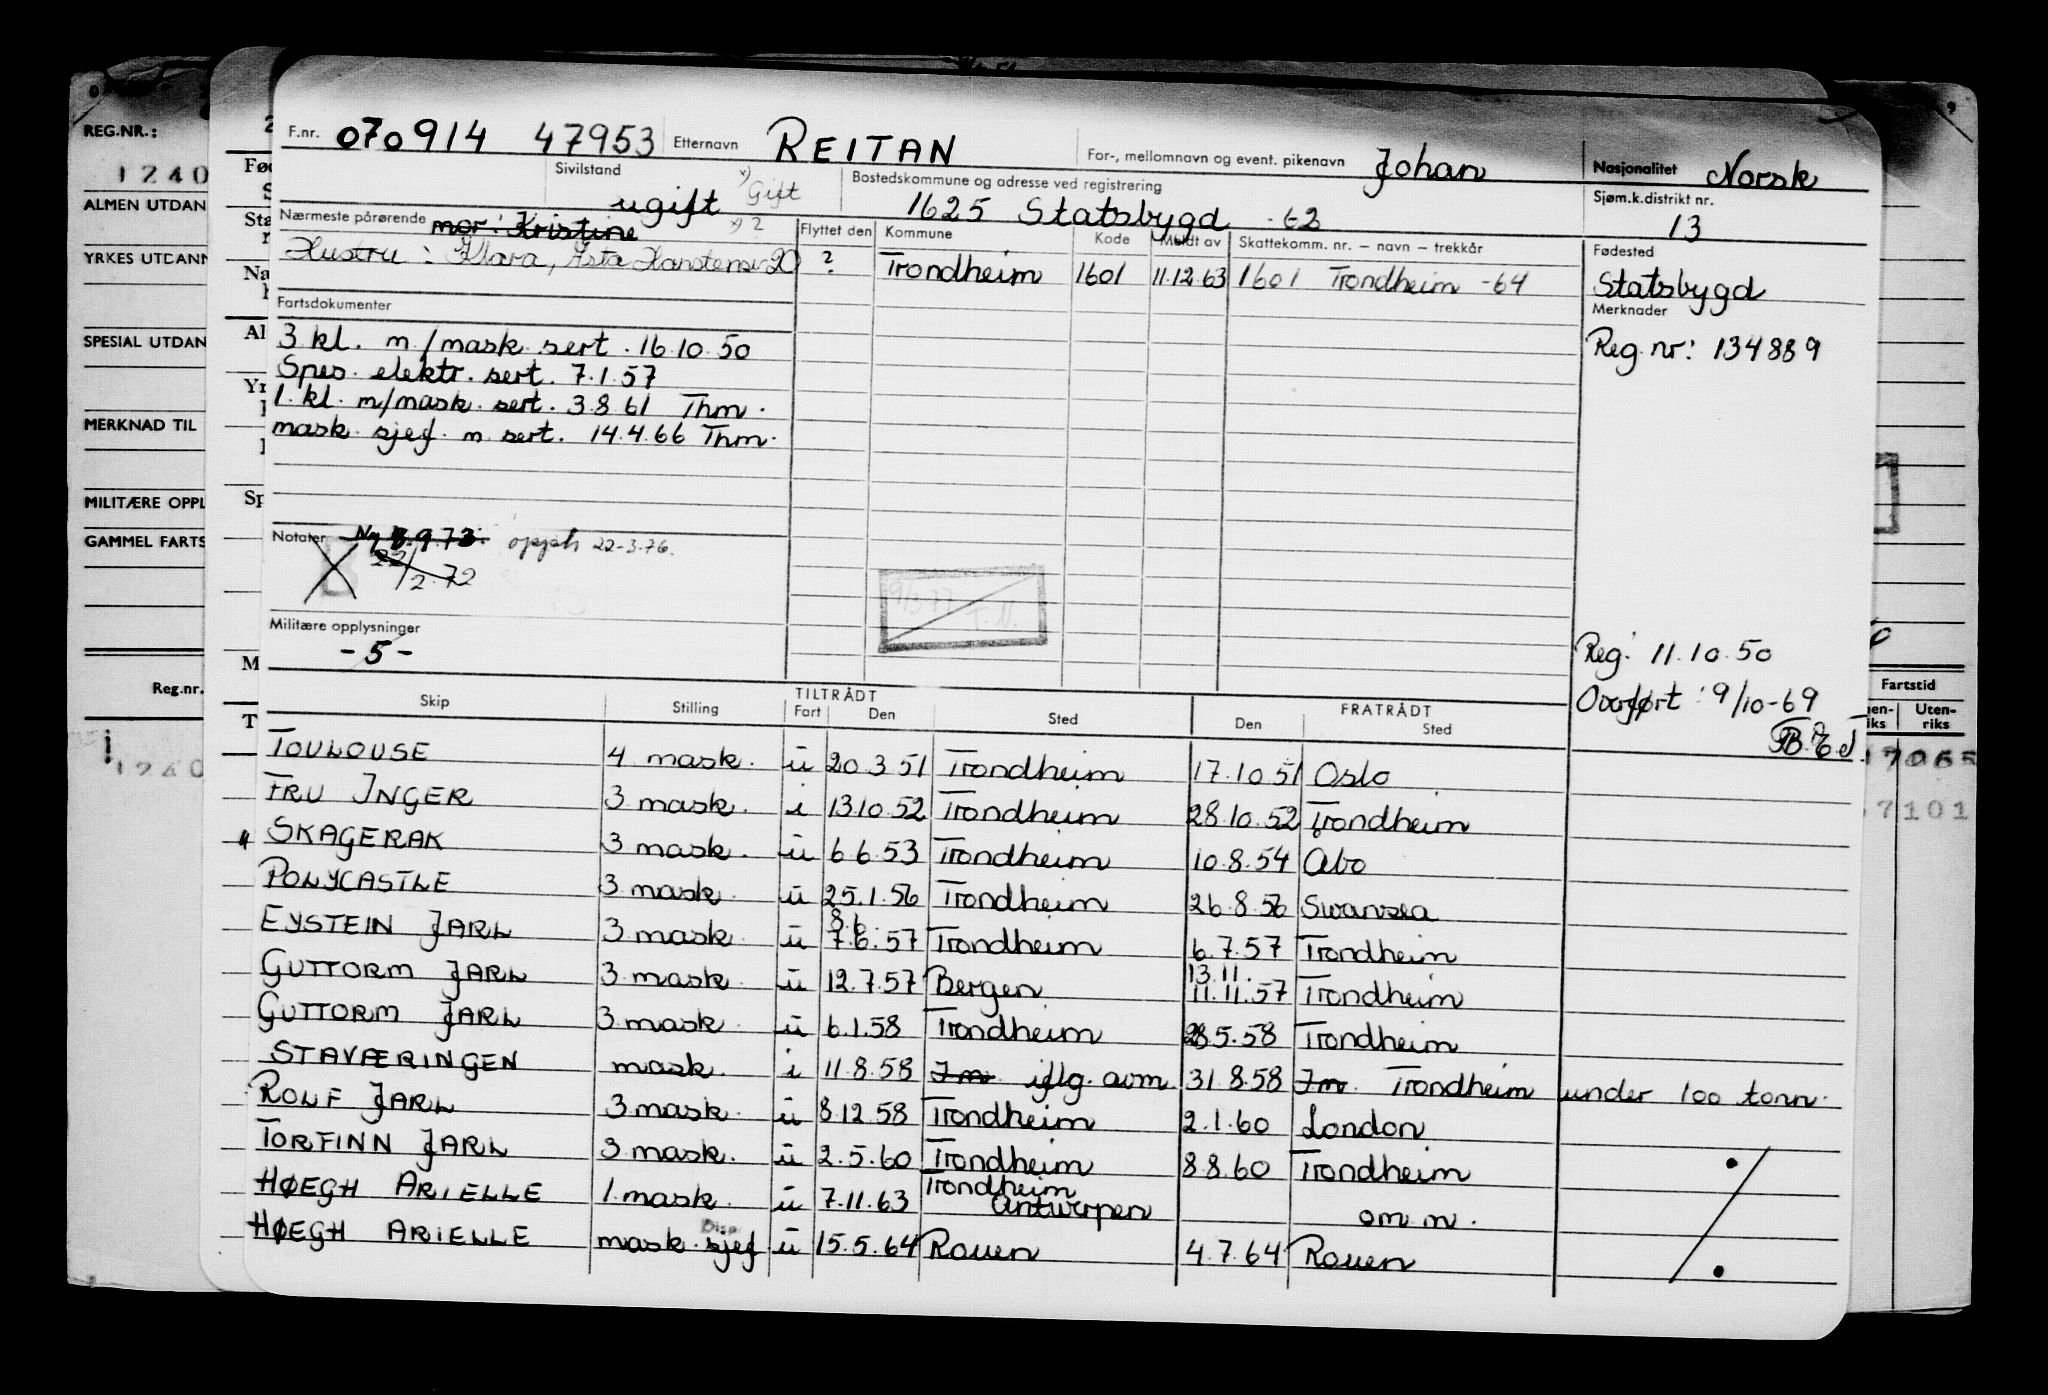 F.nr. 070914 47953 Etternavn REITAN For-, mellomnavn og event. pikenavn Johan Nasjonalitet Norsk
Sivilstand ugift x) Gift Bostedskommune og adresse ved registrering 1625 Statsbygd -62 Sjøm.k.distrikt nr. 13
Nærmeste pårørende mor: Kristine x) ? Flyttet den Kommune Kode Meldt av Skattekomm. nr. – navn – trekkår Fødested
Hustru: Klara, Asta Hanstensv 20 ? Trondheim 1601 11.12.63 1601 Trondheim -64 Statsbygd
Fartsdokumenter Merknader
3 kl. m/mask sert. 16.10.50 Reg. nr: 134889
Spes. elektr. sert. 7.1.57
1. kl. m/mask. sert. 3.8.61 Thm.
mask. sjef. m. sert. 14.4.66 Thm.
Notater Ny 3.9.73. opph 22-3.76.
22/2.72
9/3-77 T.N.
Militære opplysninger
-5-
Reg: 11.10.50
Overført: 9/10-69
TILTRÅDT FRATRÅDT
Skip Stilling Fart Den Sted Den Sted
TOULOUSE 4 mask. u 20.3.51 Trondheim 17.10.51 Oslo
FRU INGER 3 mask. i 13.10.52 Trondheim 28.10.52 Trondheim
" SKAGERAK 3 mask. u 6.6.53 Trondheim 10.8.54 Åbo
POLYCASTLE 3 mask. u 25.1.56 Trondheim 26.8.56 Swansea
8.6.
EYSTEIN JARL 3 mask. u 7.6.57 Trondheim 6.7.57 Trondheim
13.11.
GUTTORM JARL 3 mask. u 12.7.57 Bergen 11.11.57 Trondheim
GUTTORM JARL 3 mask. u 6.1.58 Trondheim 28.5.58 Trondheim
STAVÆRINGEN mask. i 11.8.58 Im iflg. avm. 31.8.58 Im. Trondheim under 100 tonn.
ROLF JARL 3 mask. u 8.12.58 Trondheim 2.1.60 London
TORFINN JARL 3 mask. u 2.5.60 Trondheim 8.8.60 Trondheim
HØEGH ARIELLE 1. mask. u 7.11.63 Trondheim Antwerpen om m.
Disp
HØEGH ARIELLE mask. sjef u 15.5.64 Rouen 4.7.64 Rouen
REG.NR.:
1240
ALMEN UTDAN
YRKES UTDANN
SPESIAL UTDAN
MERKNAD TIL
MILITÆRE OPPL
GAMMEL FARTS
Reg.nr.
1240
Fartstid
Uten-
riks
17065
7101